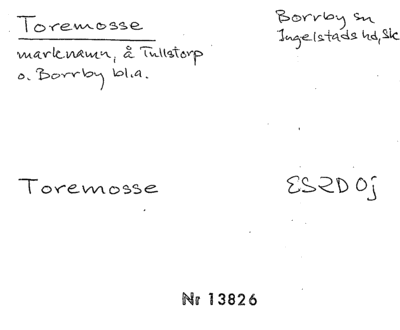 Toremosse
Borrby sn
Ingelstads hd, Sk
marknamn, å Tullstorp
o. Borrby bl.a.
Toremosse
Nr 13826